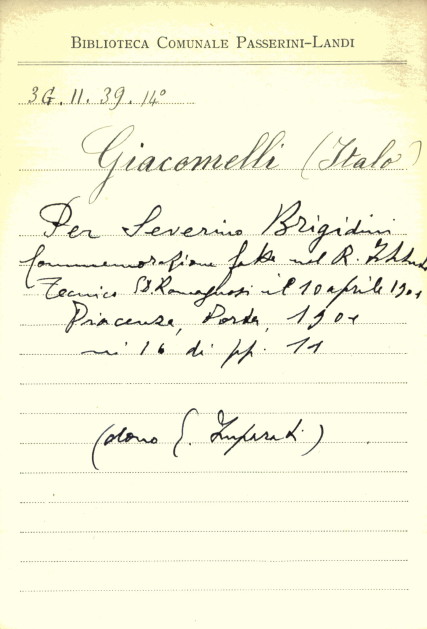 BIBLIOTECA COMUNALE PASSERINI-LANDI
3G. II. 39. 14°
Giacomelli (Italo)
Per Severino Brigidini
Commemorazione fatta nel R. Istituto
Tecnico Romagnosi il 10 aprile 1901
Piacenza, Porta, 1901
in 16 di pp. 11
(dono E. Imparati)